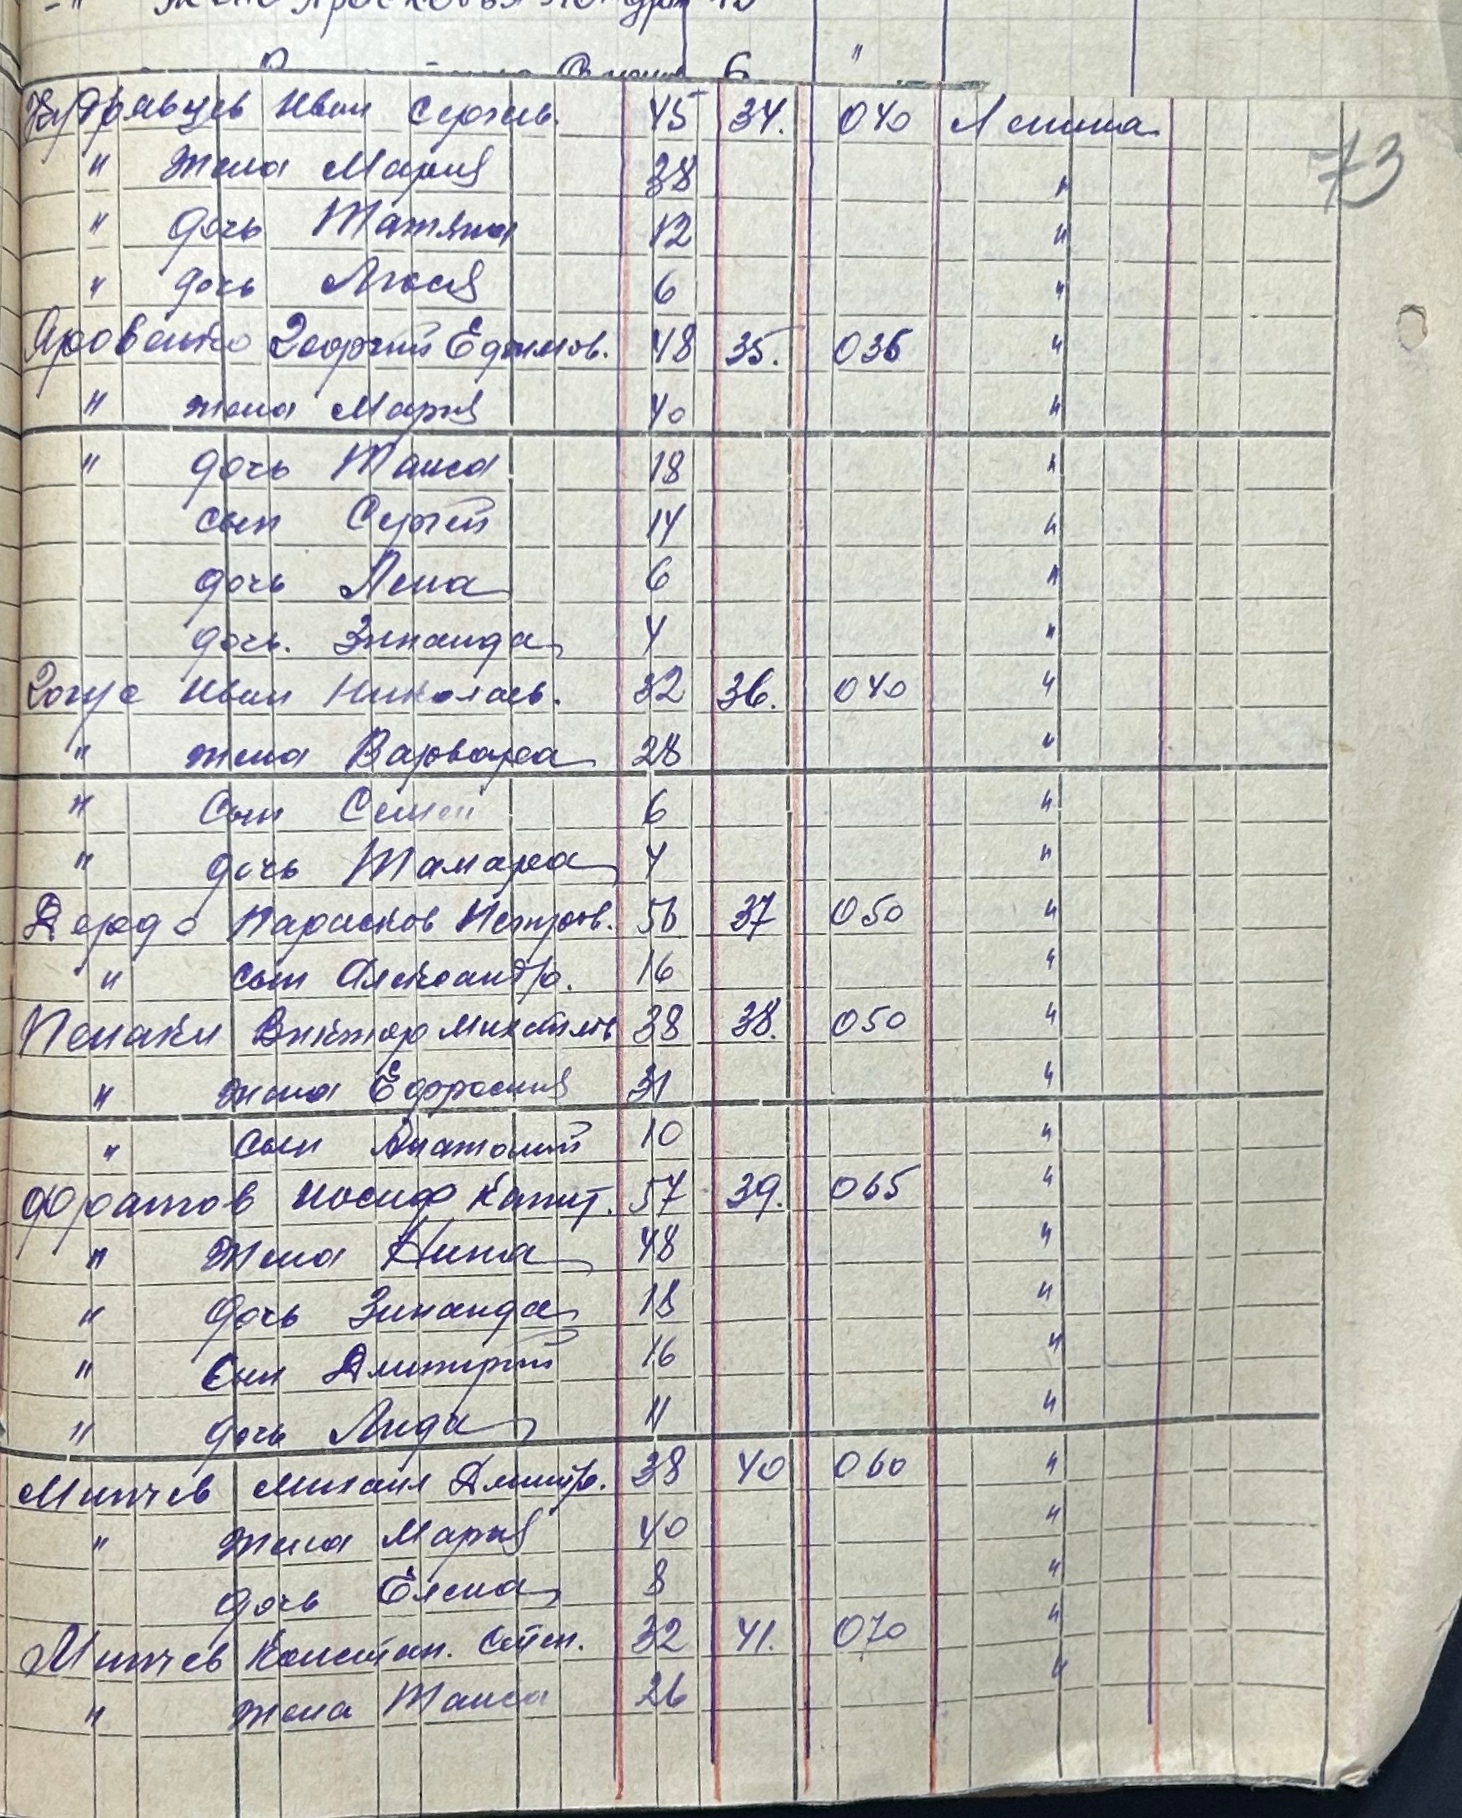 " жена Просковья 40
6 "
Кудрявцев Иван Сергеев. 45 34. 040 Ленина
" жена Мария 38 "
" дочь Татяна 12 "
" дочь Люся 6 "
Яровенко Георгий Ефимов. 48 35. 036 "
" жена Мария 40 "
" дочь Таиса 18 "
сын Сергей 14 "
дочь Лена 6 "
дочь. Зинаида 4 "
Иван Николаев. 32 36. 040 "
" жена Варвара 28 "
" сын Семен 6 "
" дочь Тамара 4 "
Парасков Петров. 56 37 050 "
" сын Александр. 16 "
Пенаки Виктор Михайлов 38 38. 050 "
" жена Ефросиния 31 "
" сын Анатолий 10 "
Фратов Иосиф Капит. 57 39. 065 "
" жена Нина 48 "
" дочь Зинаида 18 "
" сын Дмитрий 16 "
" дочь Лида 11 "
Минчев Михаил Дмитр. 38 40 060 "
" жена Мария 40 "
дочь Елена 8 "
Минчев Констан. Степ. 32 41. 070 "
" жена Таиса 26 "
73